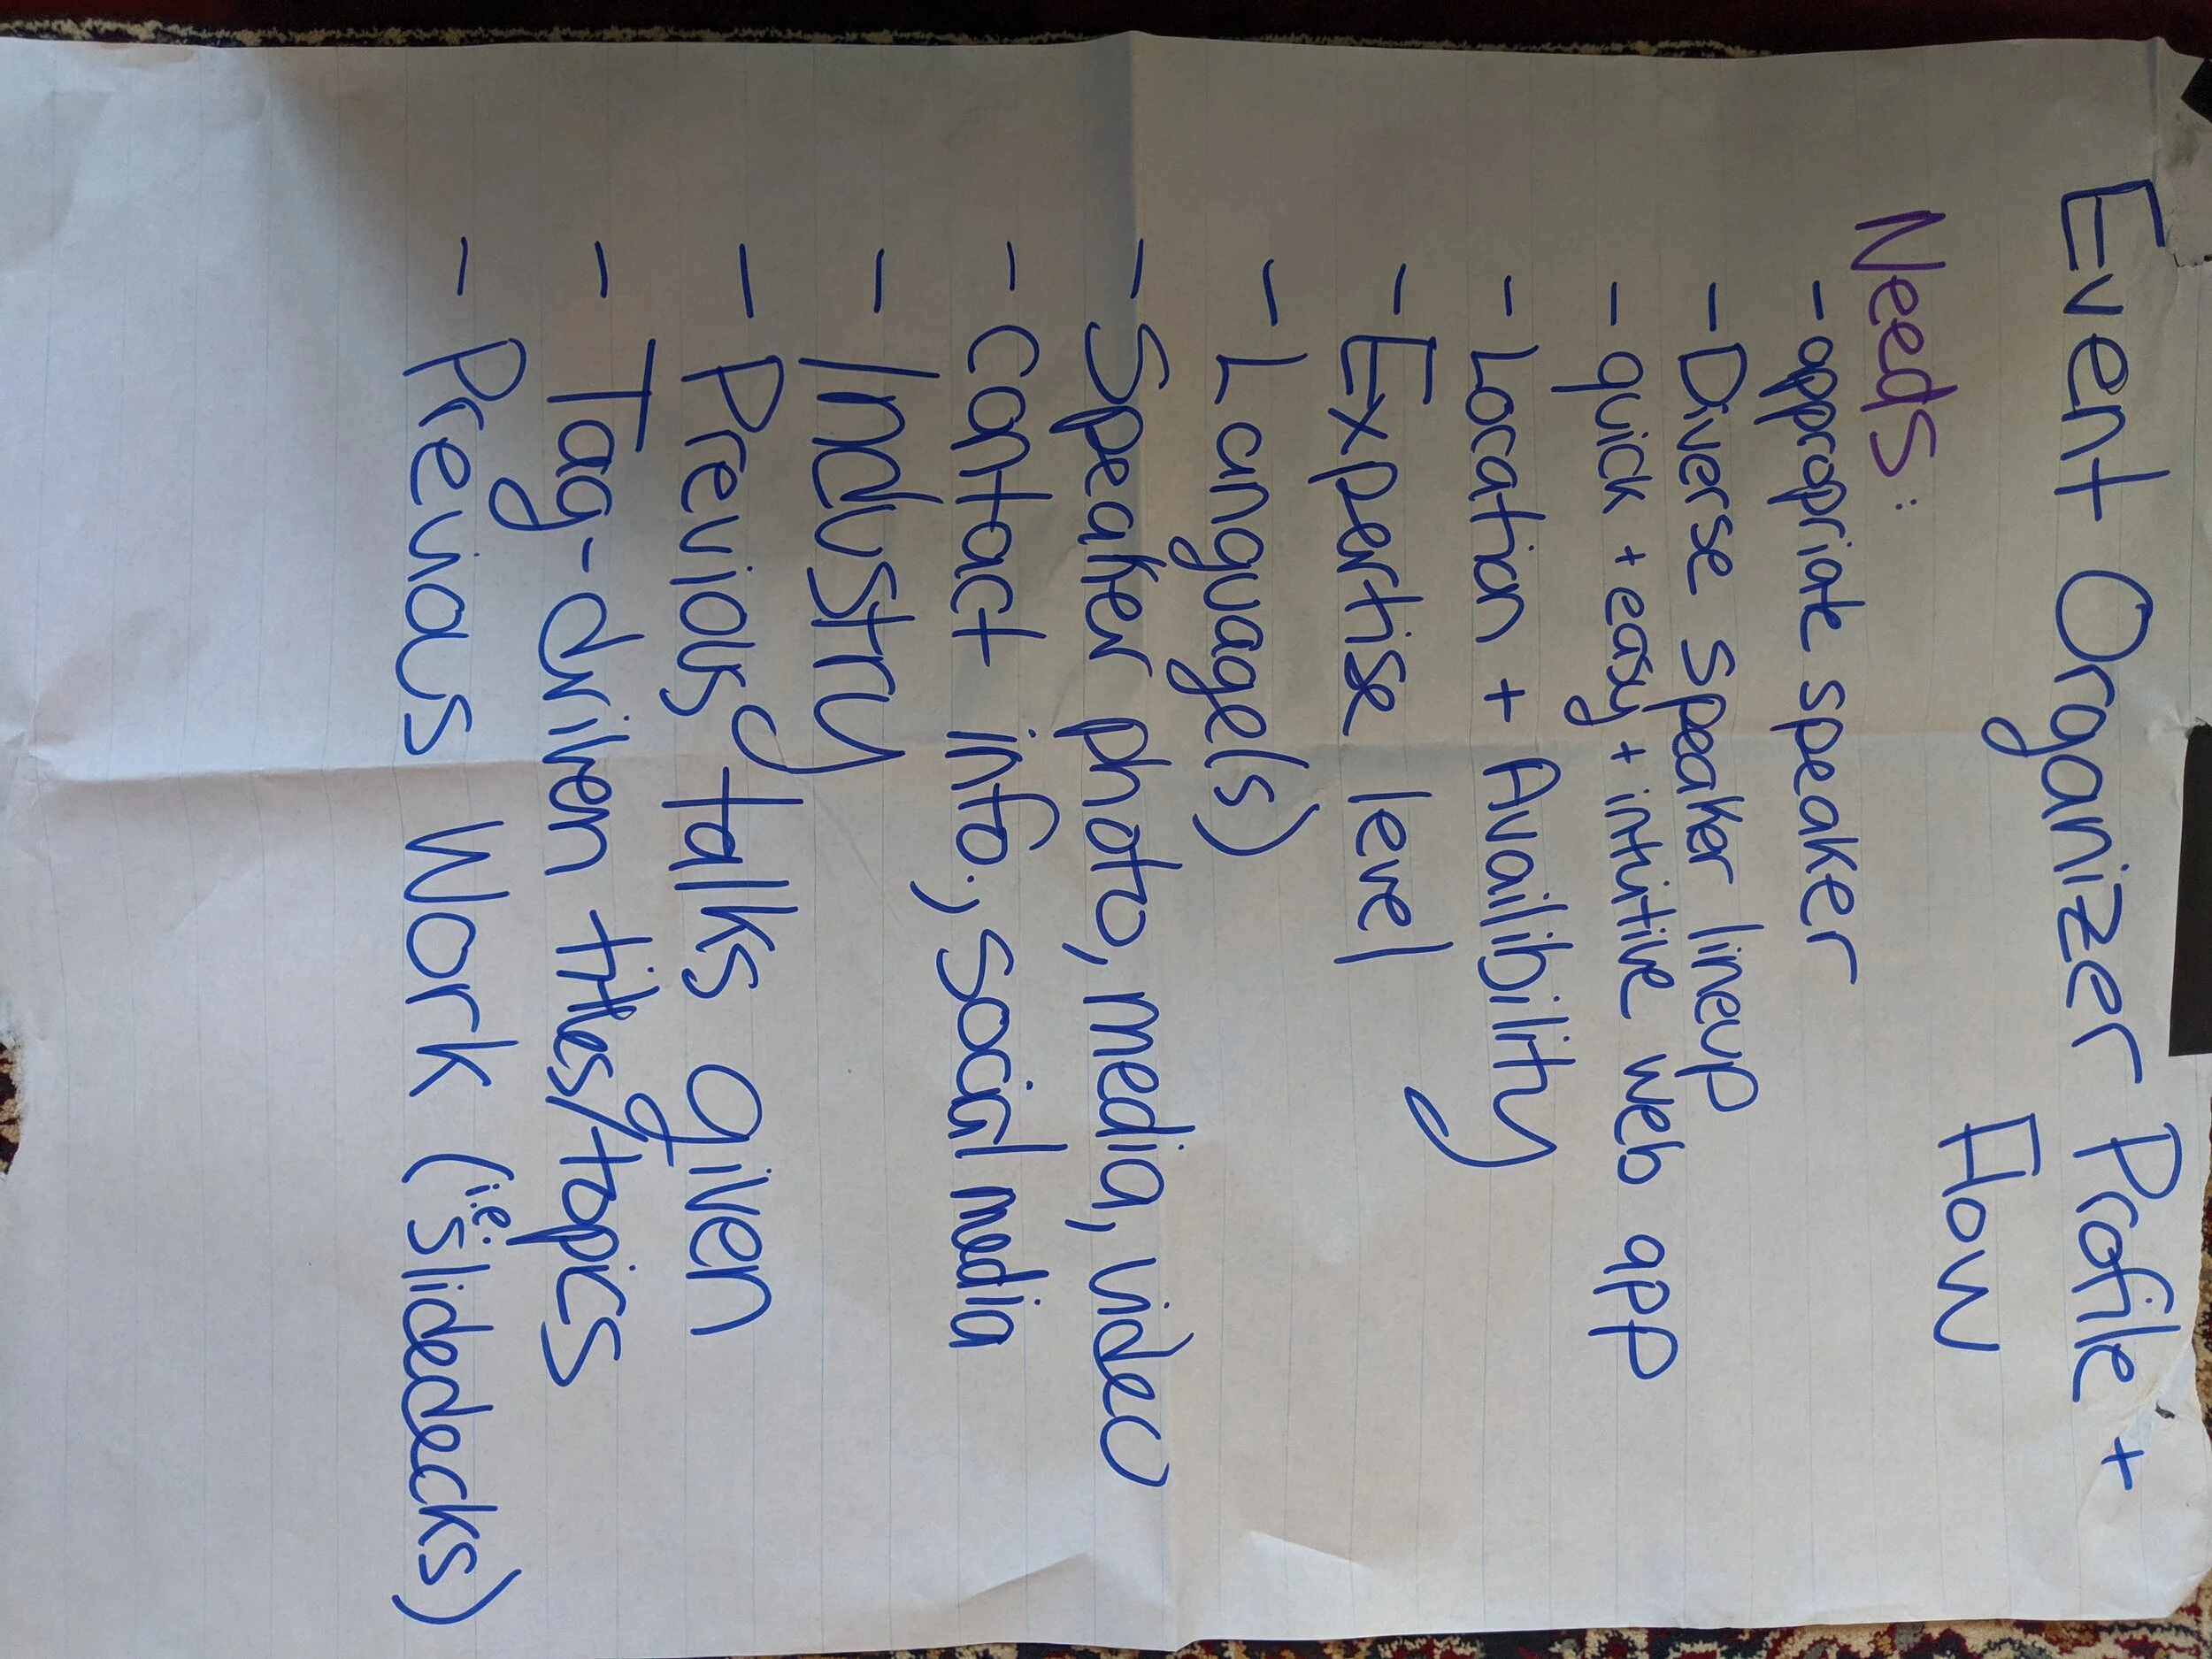 Event Organizer Profile +
Flow
Needs:
- appropriate speaker
- Diverse speaker lineup
- quick + easy + intuitive web app
- Location + Availibility
- Expertise level
- Language(s)
- Speaker photo, media, video
- contact info., social media
- Industry
- Previous talks given
- Tag-driven titles/topics
- Previous Work (i.e. slidedecks)